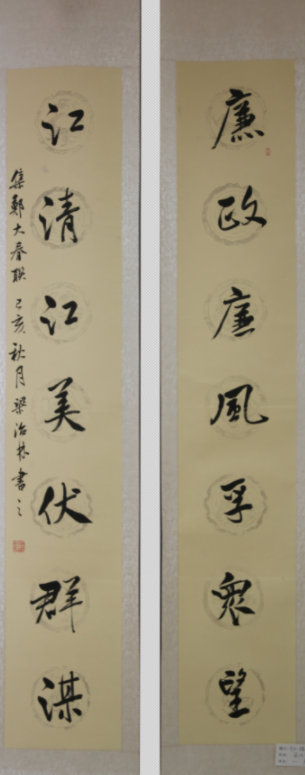 廉政廉風孚眾望
江清江美伏群謀
集鄭大春联 己亥秋月 梁治林書之